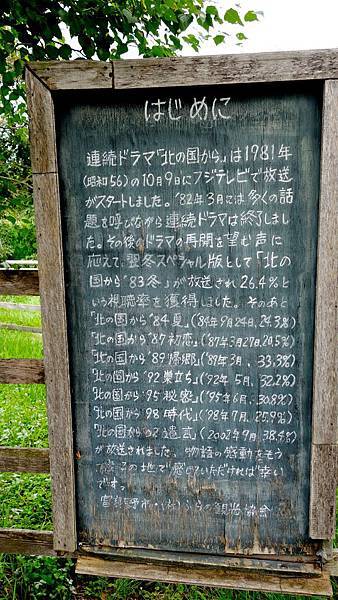 はじめに
連続ドラマ「北の国から」は1981年
(昭和56)の10月9日にフジテレビで放送
がスタートしました。'82年3月には多くの話
題を呼びながら連続ドラマは終了しまし
た。その後のドラマの再開を望む声に
応えて、翌冬スペシャル版として「北の
国から'83冬」が放送され26.4%と
いう視聴率を獲得しました。そのあと
「北の国から'84夏」('84年9月24日、24.3%)
「北の国から'87初恋」('87年3月27日、20.5%)
「北の国から'89帰郷」('89年3月、33.3%)
「北の国から'92巣立ち」('92年5月、32.2%)
「北の国から'95秘密」('95年6月、30.8%)
「北の国から'98時代」('98年7月、25.9%)
「北の国から'02遺言」(2002年9月、38.4%)
が放送されました。物語の感動をそう
この地で感じていただければ幸い
です。
富良野市・(株)ふらの観光協会